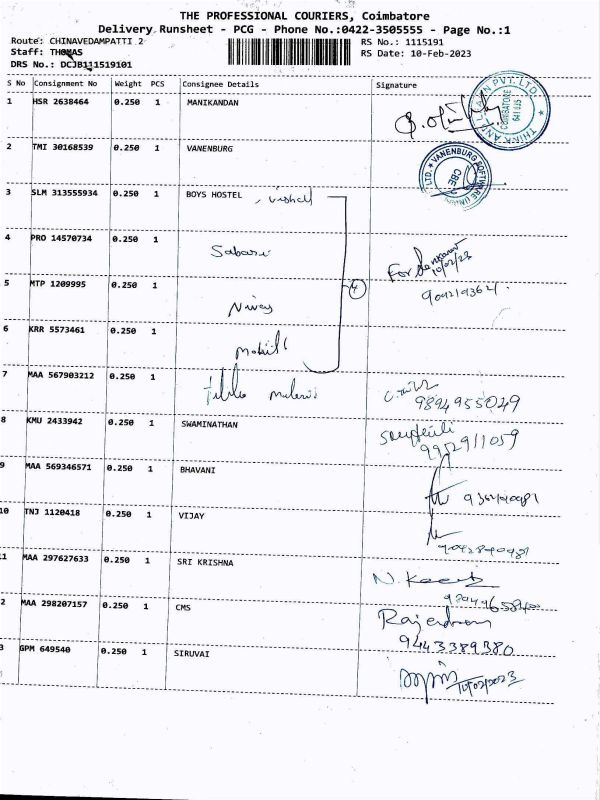 THE PROFESSIONAL COURIERS, Coimbatore
Delivery Runsheet - PCG - Phone No.:0422-3505555 - Page No.:1
Route: CHINAVEDAMPATTI 2
RS No.: 1115191
Staff: THOMAS
RS Date: 10-Feb-2023
DRS No.: DCJB111519101
S No Consignment No Weight PCS Consignee Details Signature
1 HSR 2638464 0.250 1 MANIKANDAN
2 TMI 30168539 0.250 1 VANENBURG
3 SLM 313555934 0.250 1 BOYS HOSTEL , vishal
4 PRO 14570734 0.250 1
Sabari
For
10/02/23
5 MTP 1209995 0.250 1
4
Nivas
6 KRR 5573461 0.250 1
7 MAA 567903212 0.250 1
9894955049
8 KMU 2433942 0.250 1 SWAMINATHAN
9952911059
9 MAA 569346571 0.250 1 BHAVANI
10 TNJ 1120418 0.250 1 VIJAY
11 MAA 297627633 0.250 1 SRI KRISHNA
N.
2 MAA 298207157 0.250 1 CMS
Rajendran
9443389380
3 GPM 649540 0.250 1 SIRUVAI
10/02/2023